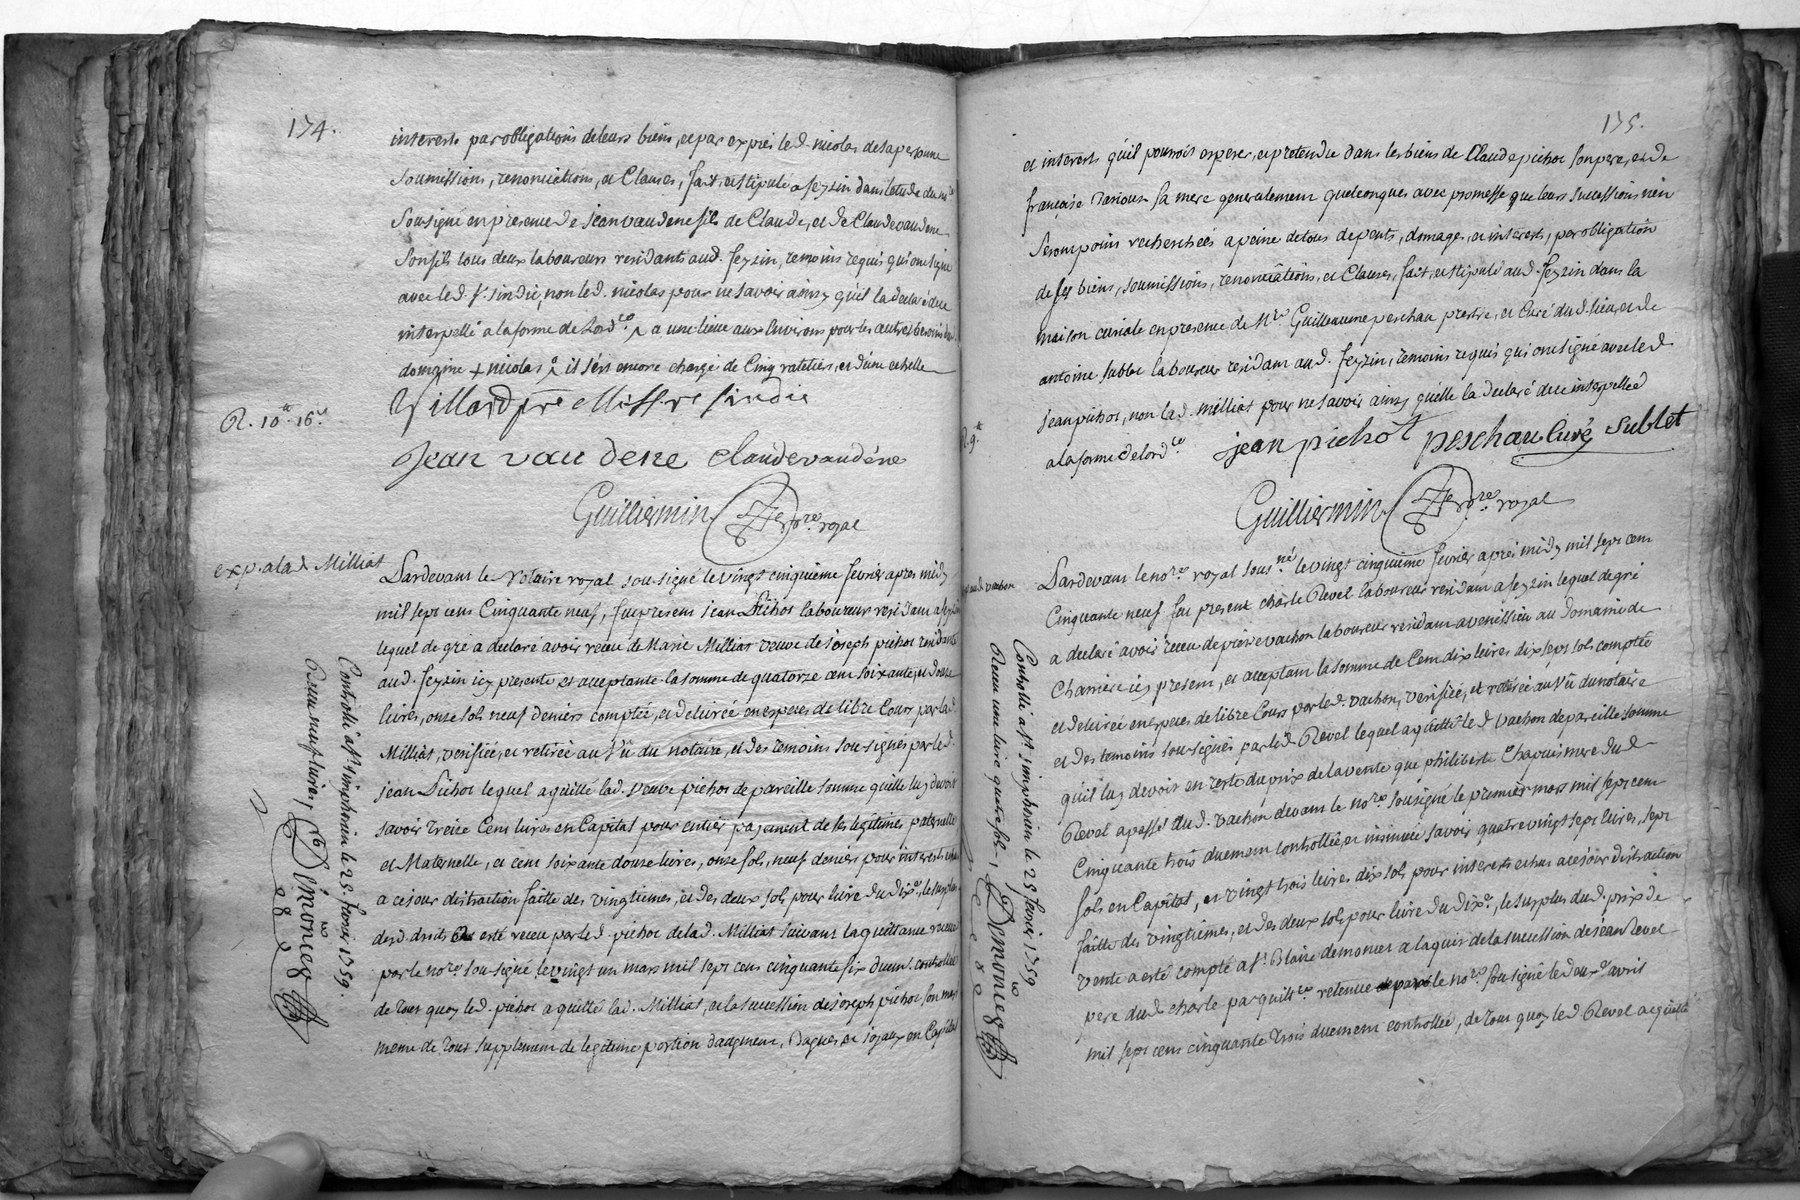 174.
interests par obligations de leurs biens, et par exprés led. nicolas de sa personne
soumissions, renonciations, et Clauses, fait, et stipulé a feyzin dans l'etude du no.re
sousigné en presence de jean vaudene fils de Claude, et de Claude vaudene
son fils tous deux laboureurs residants aud. feyzin, temoins requis qui ont signé
avec led. s.r sindic, non led. nicolas pour ne savoir ainsy qu'il la declaré de ce
interpellé a la forme de l'ord.ce
a une lieue aux Environs pour les autres besoins
domaine + nicolas il s'est encore chargé de Cinq rateliers, et d'une echelle
Villard p.re Missre sindic
R. 10.# 16.s
jean vaudene Claude vaudene
Guilliermin no.re royal
exp. a lad. Milliat
Pardevant le Notaire royal sousigné le vingt cinquieme fevrier apres midy
mil sept cens Cinquante neuf, fut present jean Pichot laboureur residant a feyzin
lequel de gré a declaré avoir receu de Marie Milliat veuve de joseph pichot residante
aud. feyzin icy presente et acceptante la somme de quatorze cent soixante, et douze
livres, onze sols neuf deniers comptée, et delivrée en especes de libre Cours par lad.
Milliat, verifiée, et retirée au Vû du notaire, et des temoins sousignés par led.
jean Pichot lequel a quitté lad. veuve pichot de pareille somme qu'elle luy devoit
savoir Treize Cent livres en Capital pour entier payement de ses legitimes paternelle
et Maternelle, et cent soixante douze livres, onze sols, neuf deniers pour interests echus
a ce jour distraction faitte des vingtiemes, et des deux sols pour livre du dix.e, le surplus
desd. droits a esté receu par led. pichot de lad. Milliat suivant la quittance receue
par le no.re sousigné le vingt un mars mil sept cens cinquante six duem.t controllée
de tout quoy led. pichot a quitté lad. Milliat, et la succession de joseph pichot son mary
meme de tout supplement de legitime portion d'augment, Bagues et joyaux en Capital
Controllé a st. simphorien le 25. fevrier 1759.
Receu neuf livres
Demoncez
175.
et interests qu'il pourroit esperer, et pretendre dans les biens de Claude pichot son pere, et de
françoise Tarioux sa mere generalement quelconques avec promesse que leurs successions n'en
seront point recherchées a peine de tous depents, domages, et interests, par obligation
de ses biens, soumissions, renonciations, et Clauses, fait, et stipulé aud. feyzin dans la
maison curiale en presence de M.re Guilleaume peschau prestre, et Curé dud. lieu, et de
antoine sublet laboureur residant aud. feyzin, temoins requis qui ont signé avec led.
jean pichot, non lad. milliat pour ne savoir ainsy qu'elle la declaré de ce interpellée
a la forme de l'ord.ce
R. 9.#
jean pichot peschau Curé sublet
Guilliermin no.re royal
vachon
Pardevant le no.re royal sous.né le vingt cinquieme fevrier aprés midy mil sept cent
Cinquante neuf fut present charle Revel laboureur residant a feyzin lequel de gré
a declaré avoir receu de pierre vachon laboureur residant a venissieu au domaine de
Charriere icy present, et acceptant la somme de Cent dix livres dix sept sols comptée
et delivrée en especes de libre Cours par led. vachon, verifiée, et retirée au Vû du notaire
et des temoins sousignés par led. Revel lequel a quitté led. vachon de pareille somme
qu'il luy devoit en reste du prix de la vente que philiberte Chapuis mere dud.
Revel a passé aud. vachon devant le no.re sousigné le premier mars mil sept cent
Cinquante trois duement controllée, et insinuée savoir quatre vingt sept livres, sept
sols en Capital, et vingt trois livres dix sols pour interests echus a ce jour distraction
faitte des vingtiemes, et des deux sols pour livre du dix.e, le surplus dud. prix de
vente a esté compté a s.r Blaise demoncez a l'aquit de la succession de jean Revel
pere dud. charle par quitt.ce retenue par le no.re sousigné le deux.e avril
mil sept cens cinquante Trois duement controllée, de tout quoy led. Revel a quitté
Controllé a st. simphorien le 25 fevrier 1759
Receu une livre quatre sols
Demoncez